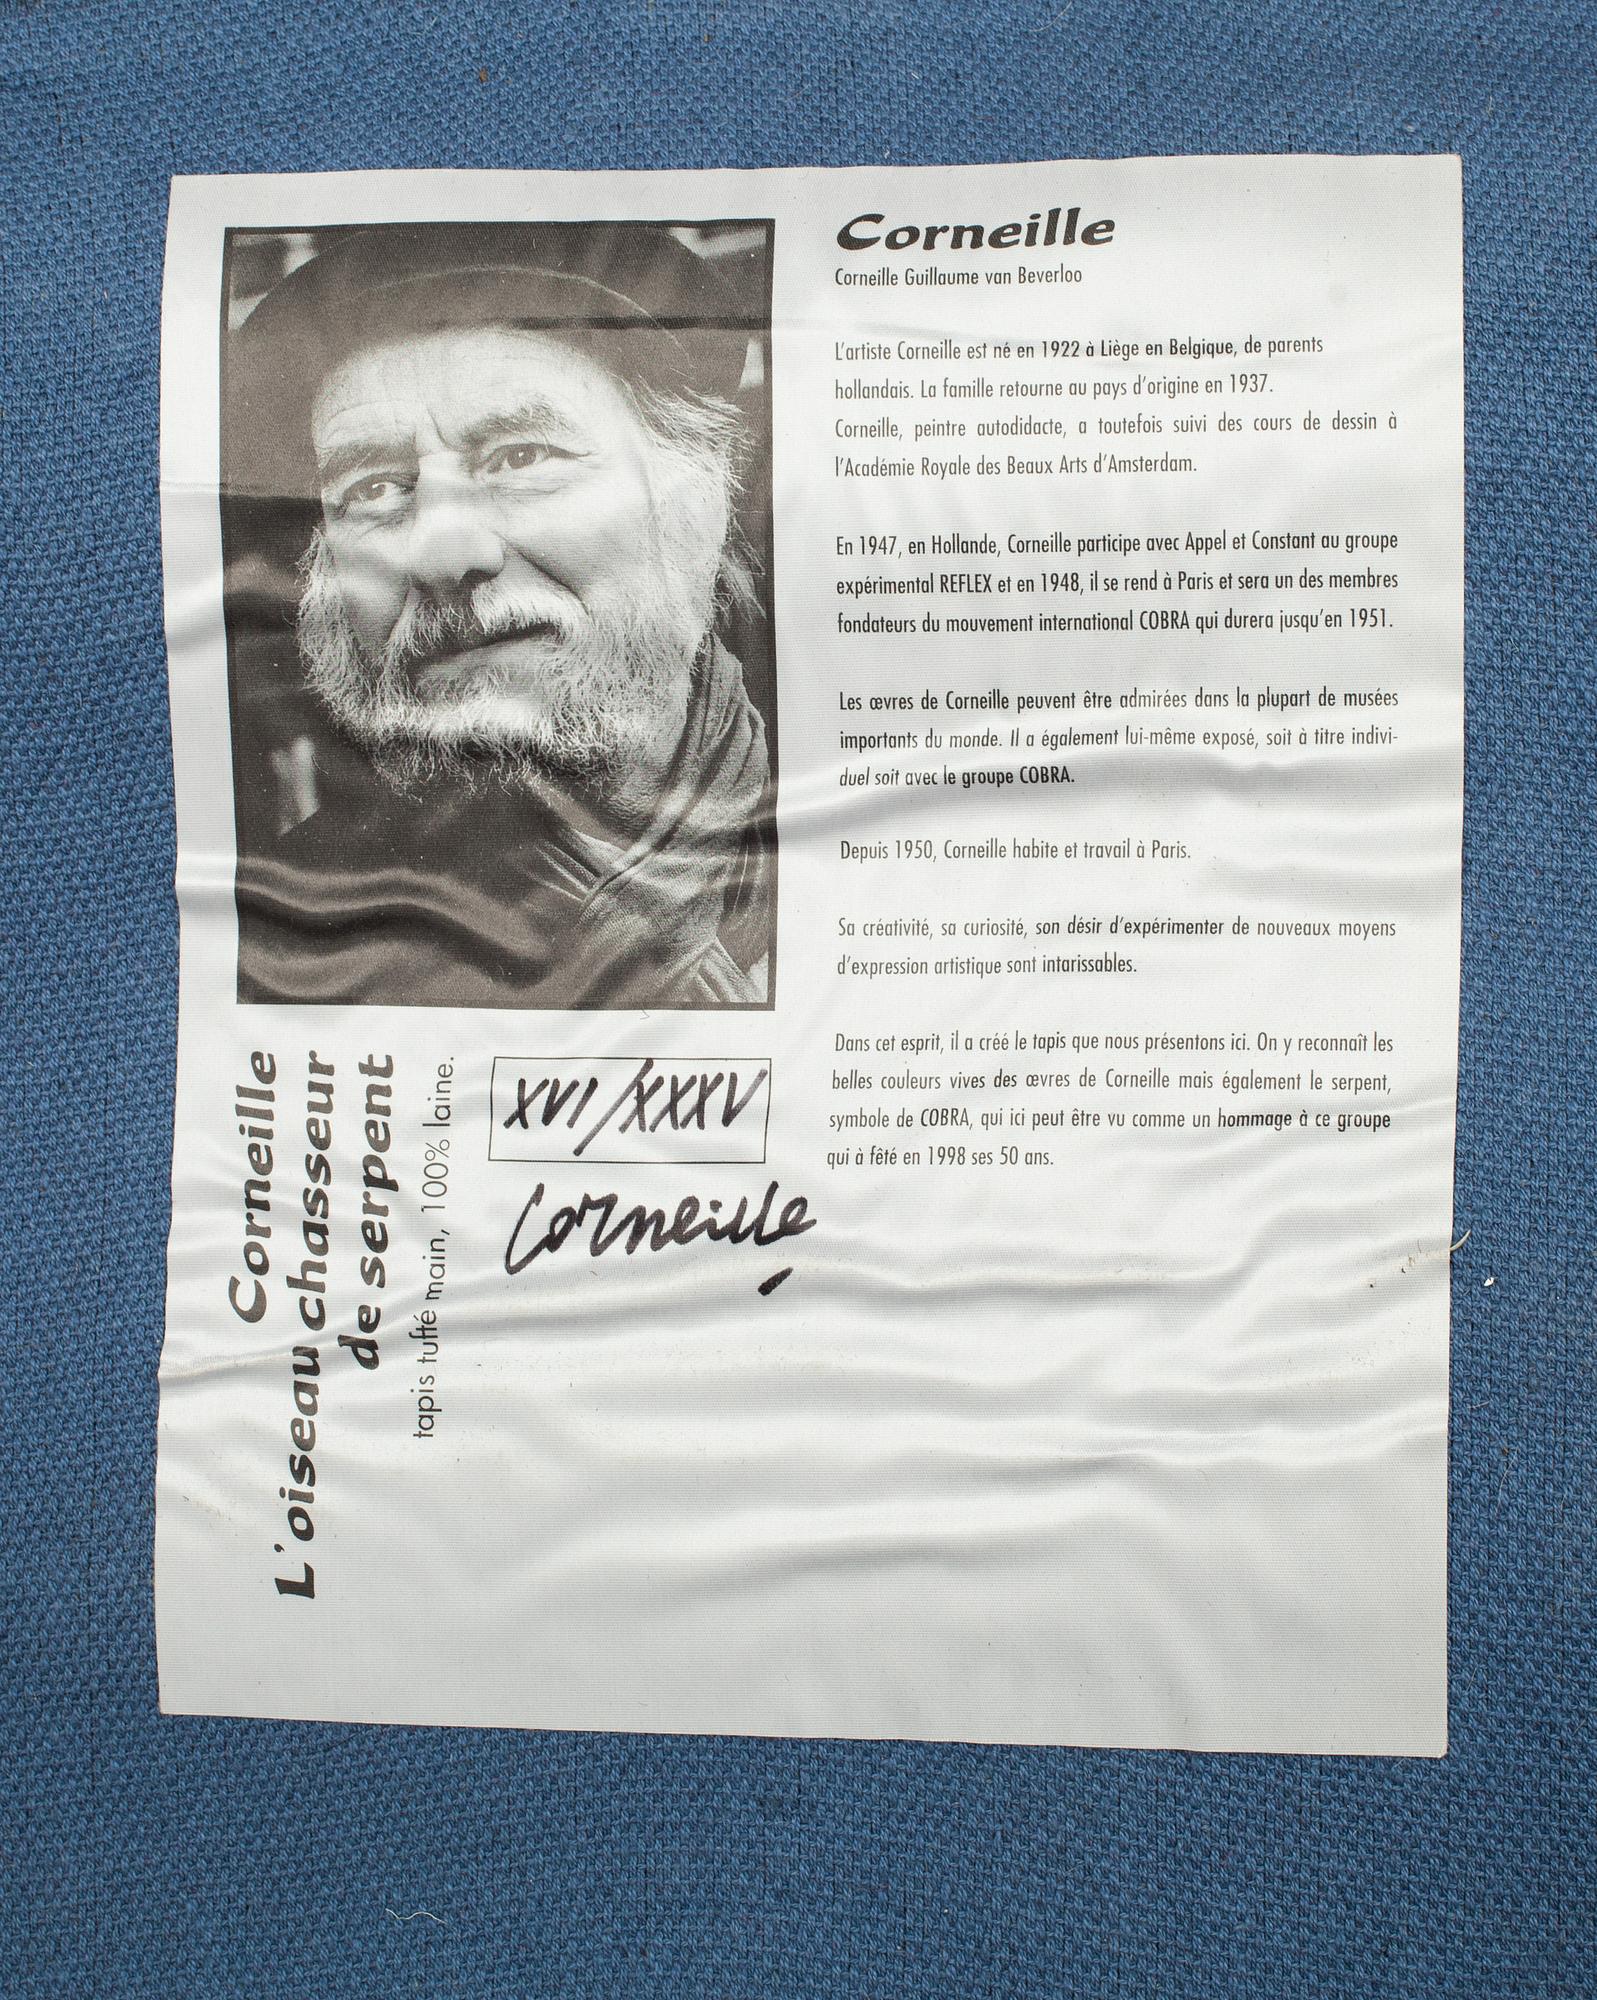 Corneille
L'oiseau chasseur
de serpent
tapis tufté main, 100% laine.
XVI/XXXV
Corneille
Corneille
Corneille Guillaume van Beverloo
L'artiste Corneille est né en 1922 à Liège en Belgique, de parents
hollandais. La famille retourne au pays d'origine en 1937.
Corneille, peintre autodidacte, a toutefois suivi des cours de dessin à
l'Académie Royale des Beaux Arts d'Amsterdam.
En 1947, en Hollande, Corneille participe avec Appel et Constant au groupe
expérimental REFLEX et en 1948, il se rend à Paris et sera un des membres
fondateurs du mouvement international COBRA qui durera jusqu'en 1951.
Les œvres de Corneille peuvent être admirées dans la plupart de musées
importants du monde. Il a également lui-même exposé, soit à titre indivi-
duel soit avec le groupe COBRA.
Depuis 1950, Corneille habite et travail à Paris.
Sa créativité, sa curiosité, son désir d'expérimenter de nouveaux moyens
d'expression artistique sont intarissables.
Dans cet esprit, il a créé le tapis que nous présentons ici. On y reconnaît les
belles couleurs vives des œvres de Corneille mais également le serpent,
symbole de COBRA, qui ici peut être vu comme un hommage à ce groupe
qui à fêté en 1998 ses 50 ans.